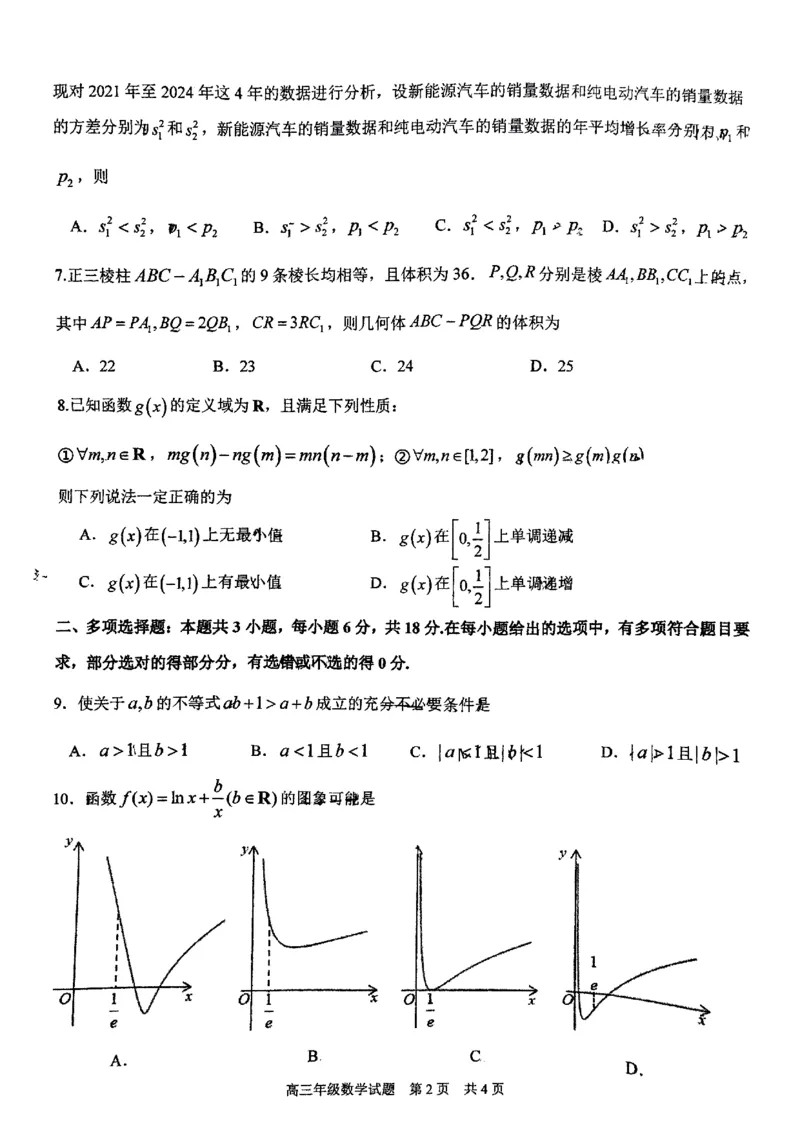 现对 2021 年至 2024 年这 4 年的数据进行分析，设新能源汽车的销量数据和纯电动汽车的销量数据
的方差分别为 s₁² 和 s₂²，新能源汽车的销量数据和纯电动汽车的销量数据的年平均增长率分别为 p₁ 和
p₂，则
A．s₁² < s₂²，p₁ < p₂ B．s₁² > s₂²，p₁ < p₂ C．s₁² < s₂²，p₁ > p₂ D．s₁² > s₂²，p₁ > p₂
7.正三棱柱 ABC − A₁B₁C₁ 的 9 条棱长均相等，且体积为 36．P,Q,R 分别是棱 AA₁,BB₁,CC₁ 上的点，
其中 AP = PA₁,BQ = 2QB₁，CR = 3RC₁，则几何体 ABC − PQR 的体积为
A．22 B．23 C．24 D．25
8.已知函数 g(x) 的定义域为 R，且满足下列性质：
①∀m,n∈R，mg(n)−ng(m)=mn(n−m)；②∀m,n∈[1,2]，g(mn)≥g(m)g(n)
则下列说法一定正确的为
A．g(x) 在 (−1,1) 上无最小值 B．g(x) 在 [0,1/2] 上单调递减
C．g(x) 在 (−1,1) 上有最小值 D．g(x) 在 [0,1/2] 上单调递增
二、多项选择题：本题共 3 小题，每小题 6 分，共 18 分.在每小题给出的选项中，有多项符合题目要
求，部分选对的得部分分，有选错或不选的得 0 分.
9．使关于 a,b 的不等式 ab+1>a+b 成立的充分不必要条件是
A．a>1且b>1 B．a<1且b<1 C．|a|<1且|b|<1 D．|a|>1且|b|>1
10．函数 f(x)=ln x+b/x(b∈R) 的图象可能是
y y y
O 1/e x O 1/e x O 1/e x O 1/e x
A． B. C D．
高三年级数学试题 第 2 页 共 4 页